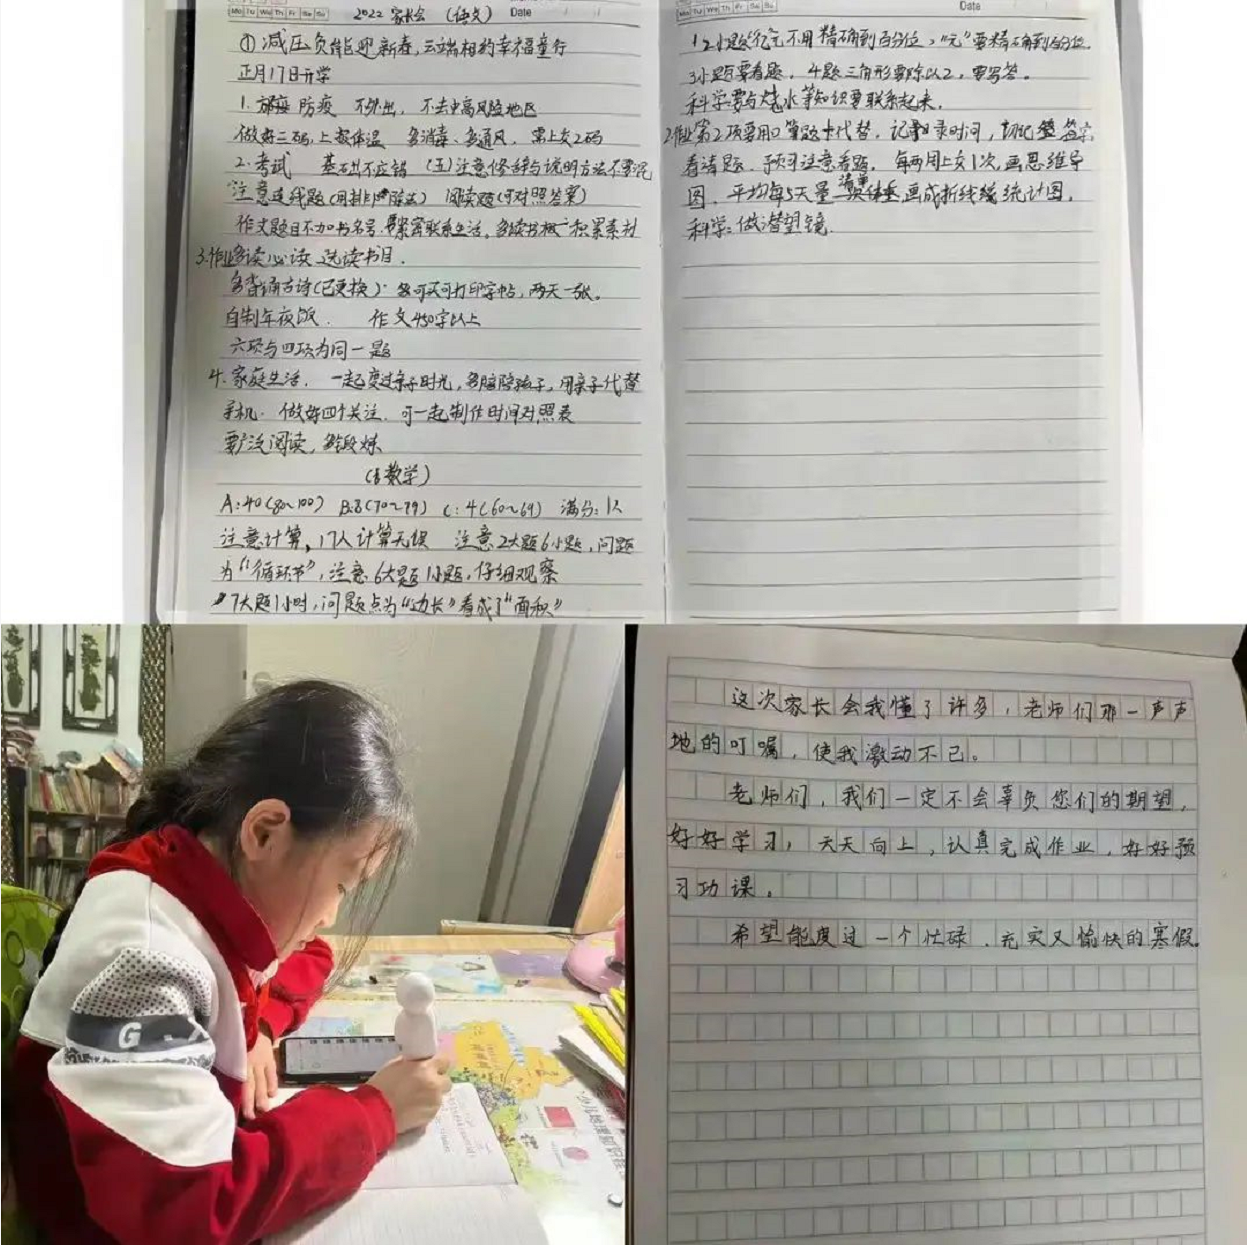 Mo Tu We Th Fr Sa Su
2022 家长会 (语文)
Date
① 减压负能迎新春,云端相约幸福童行
正月17日开学
1. 防疫 不外出, 不去中高风险地区
做好三码,上报体温 多消毒、多通风, 需上交2码
2. 考试 基础不应错 (五)注意修辞与说明方法不要混
注意连线题(用排除法) 阅读题(可对照答案)
作文题目不加书名号,紧密联系生活,多读书积累素材
3.作业多读必读、选读书目.
多背诵古诗(已更换). 可买可打印字帖,两天一张。
自制年夜饭. 作文450字以上
六项与四项为同一题
4. 家庭生活. 一起度过亲子时光,多陪陪孩子,用亲子代替
手机. 做好四个关注. 可一起制作时间对照表
要广泛阅读,多锻炼
(数学)
A:40(80~100) B:8(70~79) C:4(60~69) 满分:1人
注意计算,17人计算无误 注意2大题6小题,问题
为“循环节”,注意6大题1小题,仔细观察
7大题1小时,问题点为“边长”看成了“面积”
Mo Tu We Th Fr Sa Su
Date
12小题“亿元不用精确到百分位,“元”要精确到百分位.
3小题要看题, 4题三角形要除以2,要写答。
科学要与烧水等知识要联系起来.
2.作业第2项要用口算题卡代替. 记录时间,切记签字.
看清题. 预习注意看题. 每两周上交1次,画思维导
图. 平均每5天量一次体重,画成折线统计图.
科学:做潜望镜.
G
少儿地理知识
这次家长会我懂了许多,老师们那一声声
地的叮嘱,使我激动不已。
老师们,我们一定不会辜负您们的期望,
好好学习,天天向上,认真完成作业,好好预
习功课。
希望能度过一个忙碌、充实又愉快的寒假。